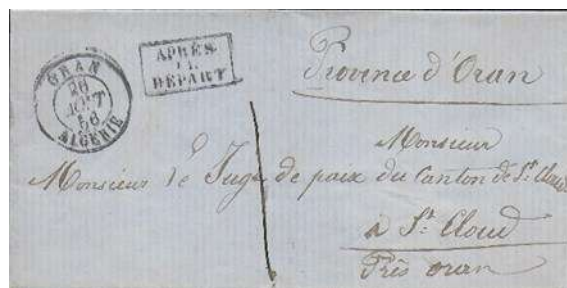 ORAN
26
AOUT
56
ALGERIE
APRÈS
LE
DÉPART
Province d'Oran
Monsieur
Monsieur le Juge de paix du Canton de St. Cloud
a St. Cloud
Près oran